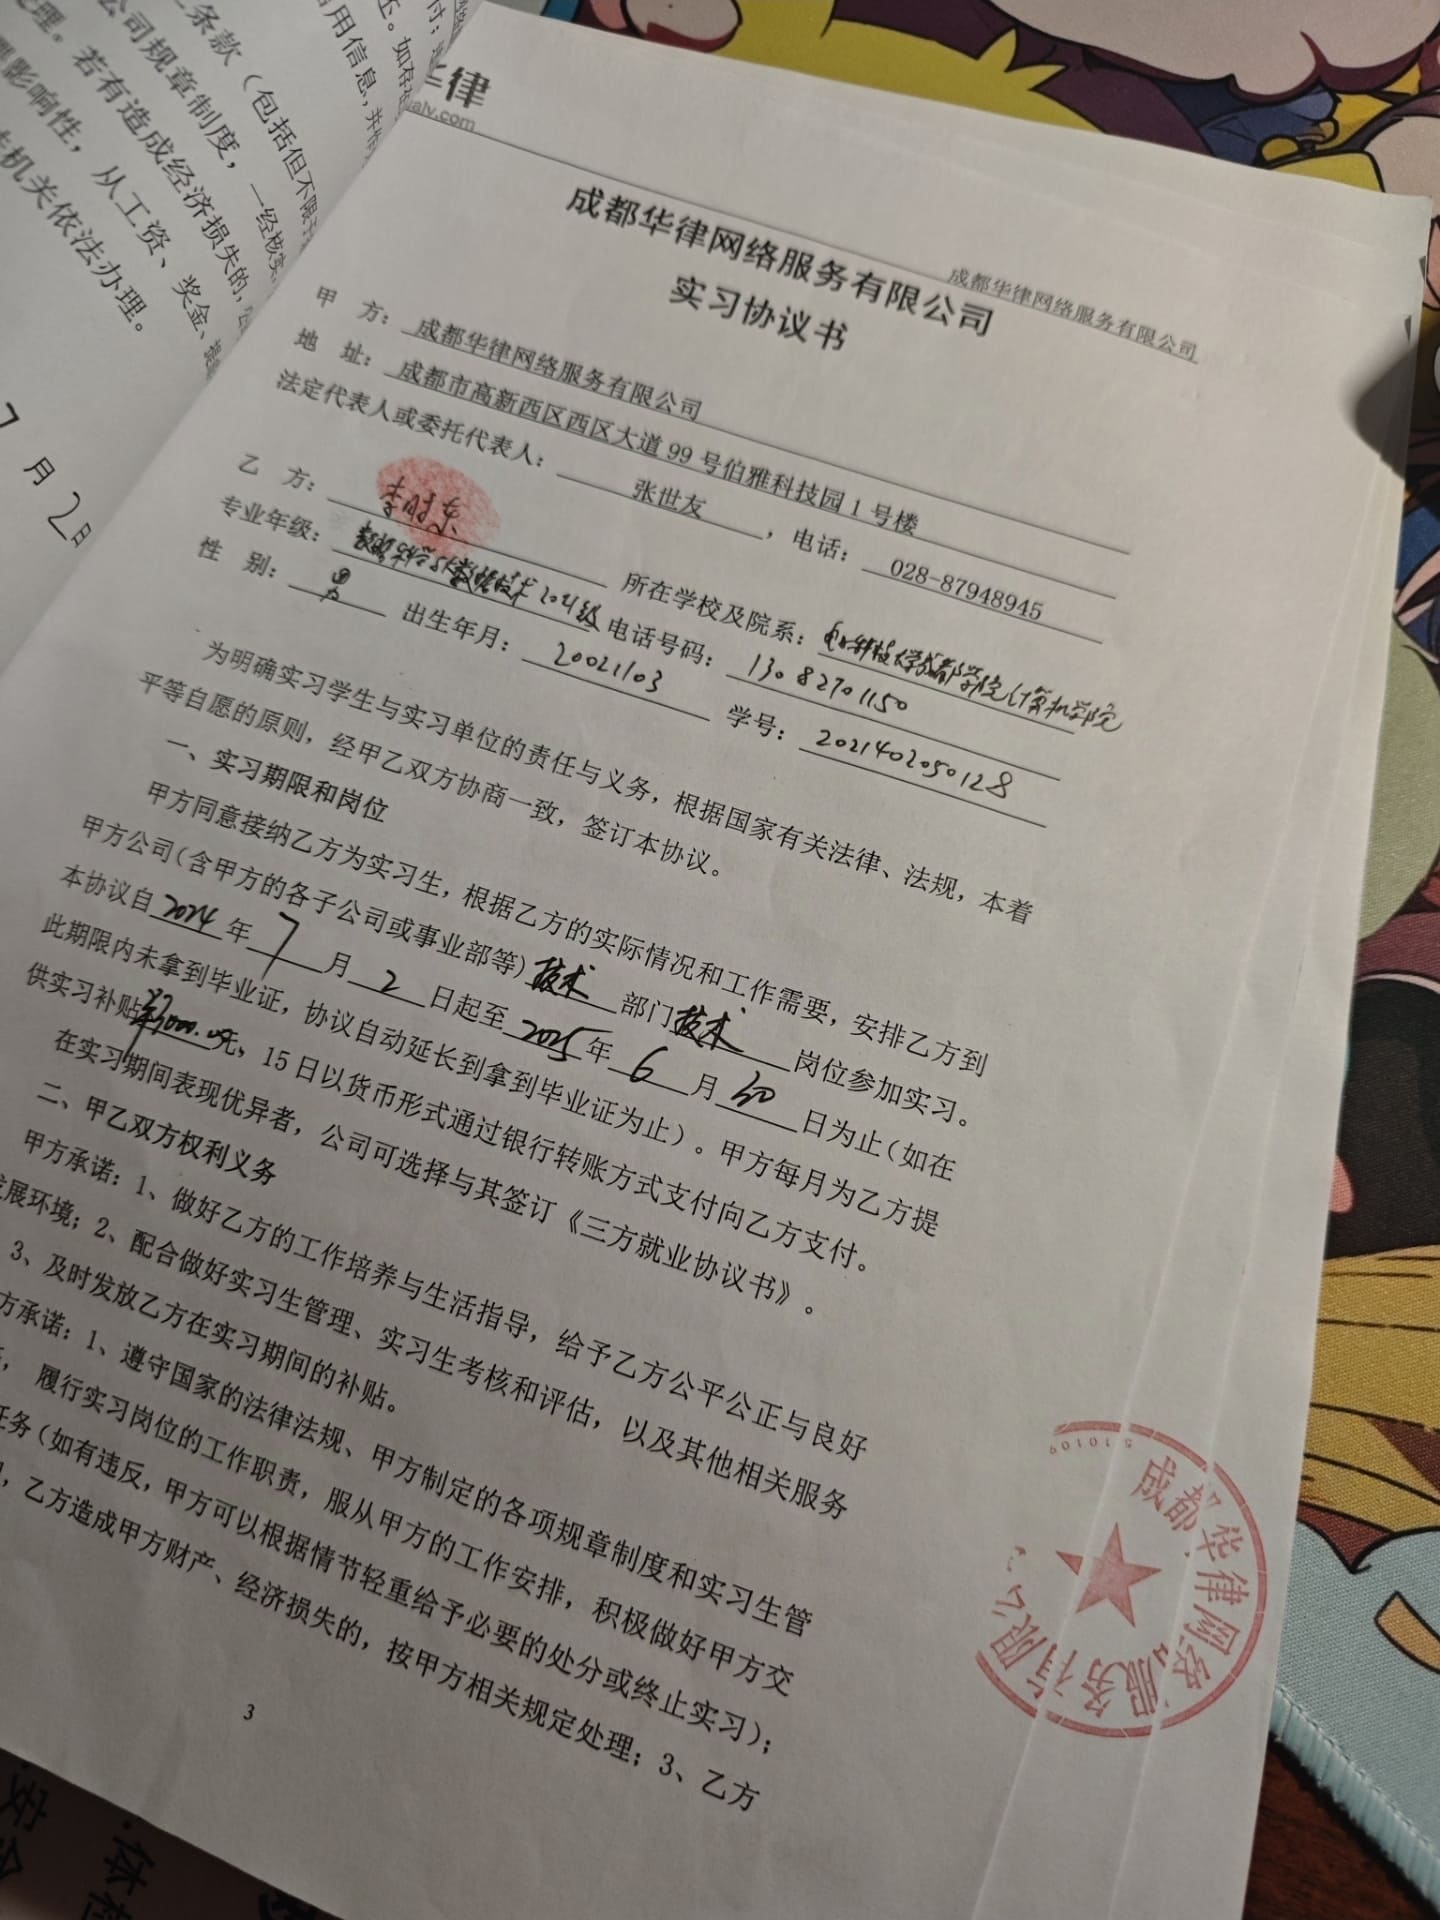 条款（包括但不限于
公司规章制度，一经核实
处理。若有造成经济损失的，
影响性，从工资、奖金、
机关依法办理。
付：
还。如存
用信息，并
7月2日
华律
成都华律网络服务有限公司
成都华律网络服务有限公司
实习协议书
甲 方：成都华律网络服务有限公司
地 址：成都市高新西区西区大道99号伯雅科技园1号楼
法定代表人或委托代表人：张世友，电话：028-87948945
乙 方：李时东 所在学校及院系：电子科技大学成都学院计算机学院
专业年级：数据科学与大数据技术2021级 电话号码：13082701150
性 别：男 出生年月：20021103 学号：2021402050128
为明确实习学生与实习单位的责任与义务，根据国家有关法律、法规，本着
平等自愿的原则，经甲乙双方协商一致，签订本协议。
一、实习期限和岗位
甲方同意接纳乙方为实习生，根据乙方的实际情况和工作需要，安排乙方到
甲方公司（含甲方的各子公司或事业部等）技术部门技术岗位参加实习。
本协议自2024年7月2日起至2025年6月30日为止（如在
此期限内未拿到毕业证，协议自动延长到拿到毕业证为止）。甲方每月为乙方提
供实习补贴元，15日以货币形式通过银行转账方式支付向乙方支付。
在实习期间表现优异者，公司可选择与其签订《三方就业协议书》。
二、甲乙双方权利义务
甲方承诺：1、做好乙方的工作培养与生活指导，给予乙方公平公正与良好
发展环境；2、配合做好实习生管理、实习生考核和评估，以及其他相关服务
3、及时发放乙方在实习期间的补贴。
方承诺：1、遵守国家的法律法规、甲方制定的各项规章制度和实习生管
履行实习岗位的工作职责，服从甲方的工作安排，积极做好甲方交
任务（如有违反，甲方可以根据情节轻重给予必要的处分或终止实习）；
，乙方造成甲方财产、经济损失的，按甲方相关规定处理；3、乙方
成都华律网络服务有限公
510109
3